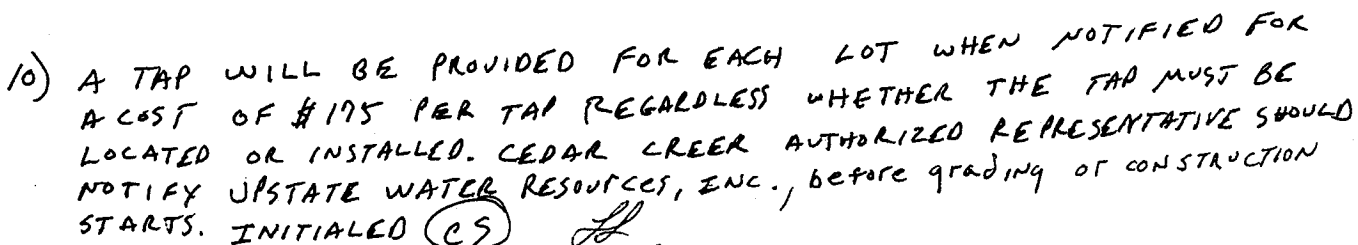 10) A TAP WILL BE PROVIDED FOR EACH LOT WHEN NOTIFIED FOR
A COST OF $175 PER TAP REGARDLESS WHETHER THE TAP MUST BE
LOCATED OR INSTALLED. CEDAR CREER AUTHORIZED REPRESENTATIVE SHOULD
NOTIFY UPSTATE WATER RESOURCES, INC., before grading or CONSTRUCTION
STARTS. INITIALED CS